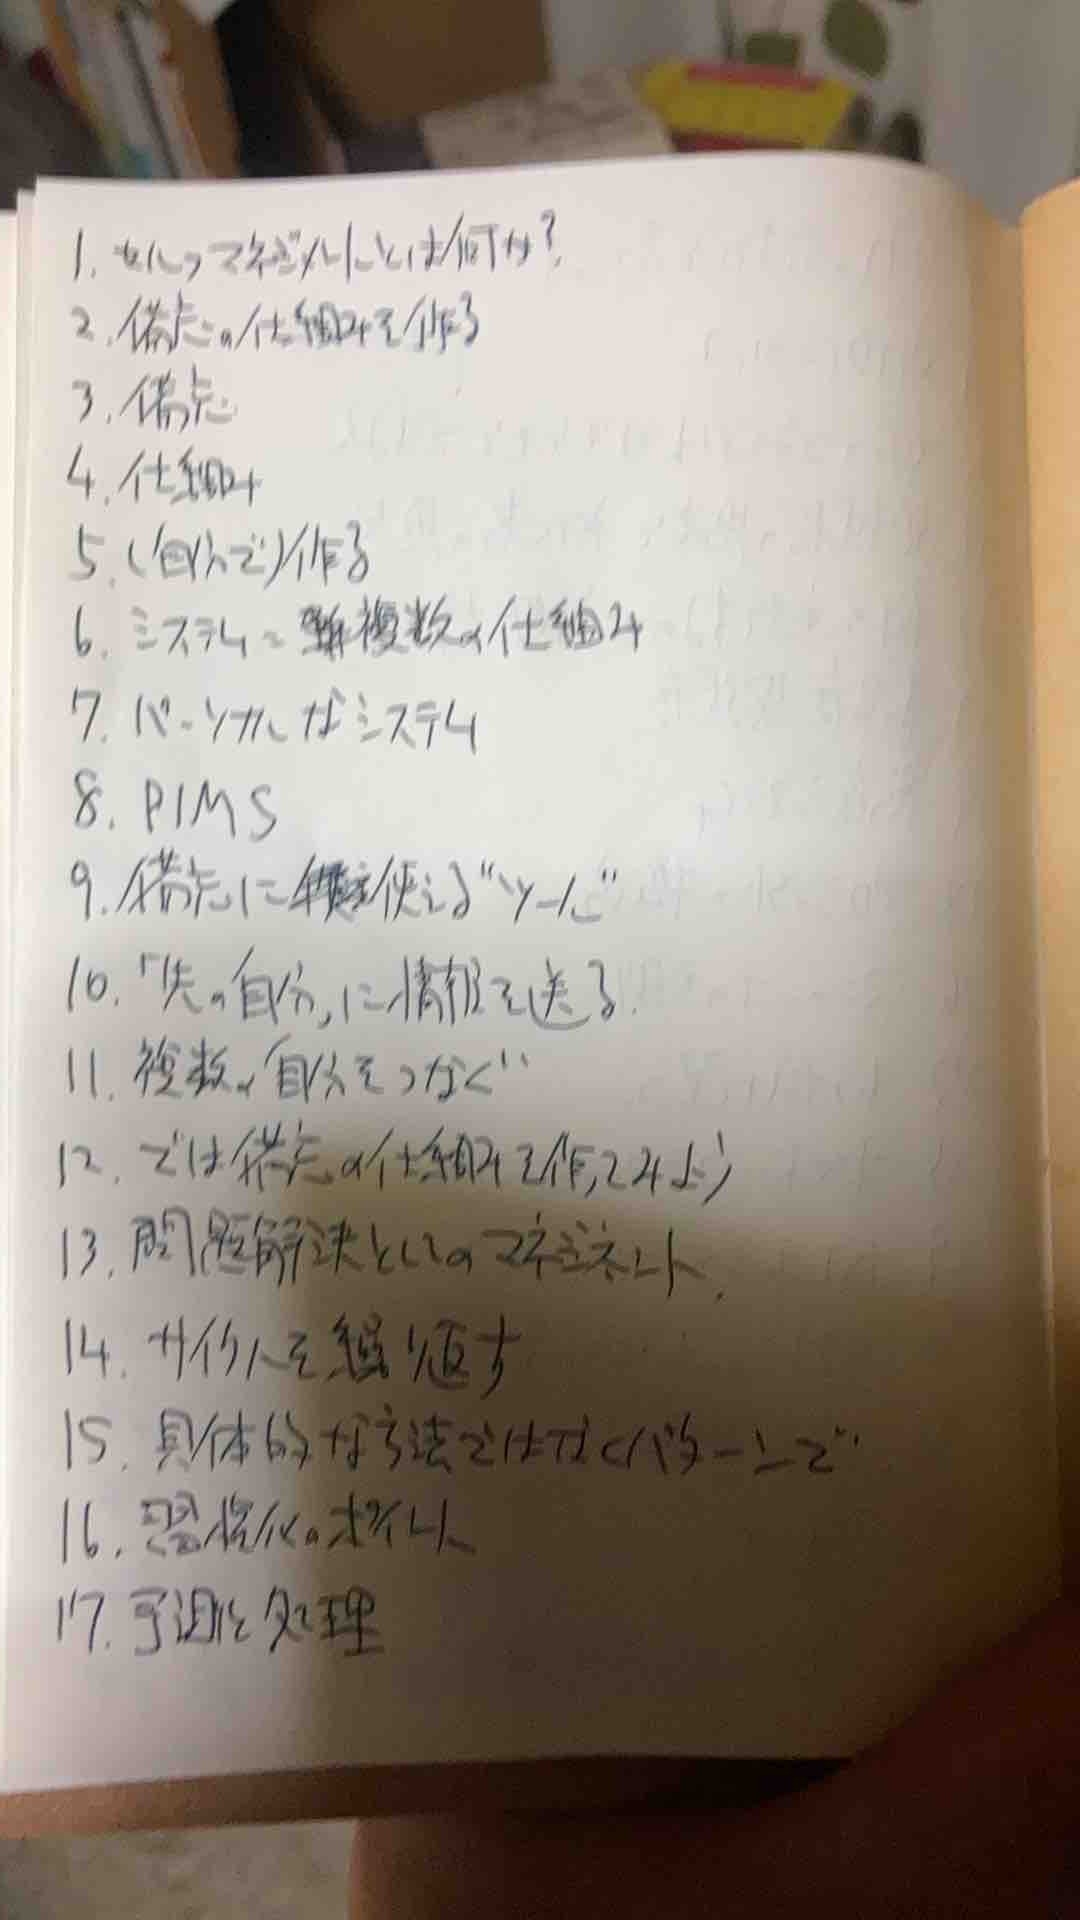 1. セルフマネジメントとは何か?
2. 備忘の仕組みを作る
3. 備忘
4. 仕組み
5. (自分で)作る
6. システム=複数の仕組み
7. パーソナルなシステム
8. PIMS
9. 備忘に使える"ツール"
10. 「先の自分」に情報を送る
11. 複数の自分をつなぐ
12. では備忘の仕組みを作ってみよう
13. 問題解決としてのマネジメント
14. サイクルを繰り返す
15. 具体的な方法ではなくパターンで
16. 習慣化のポイント
17. 予測と処理